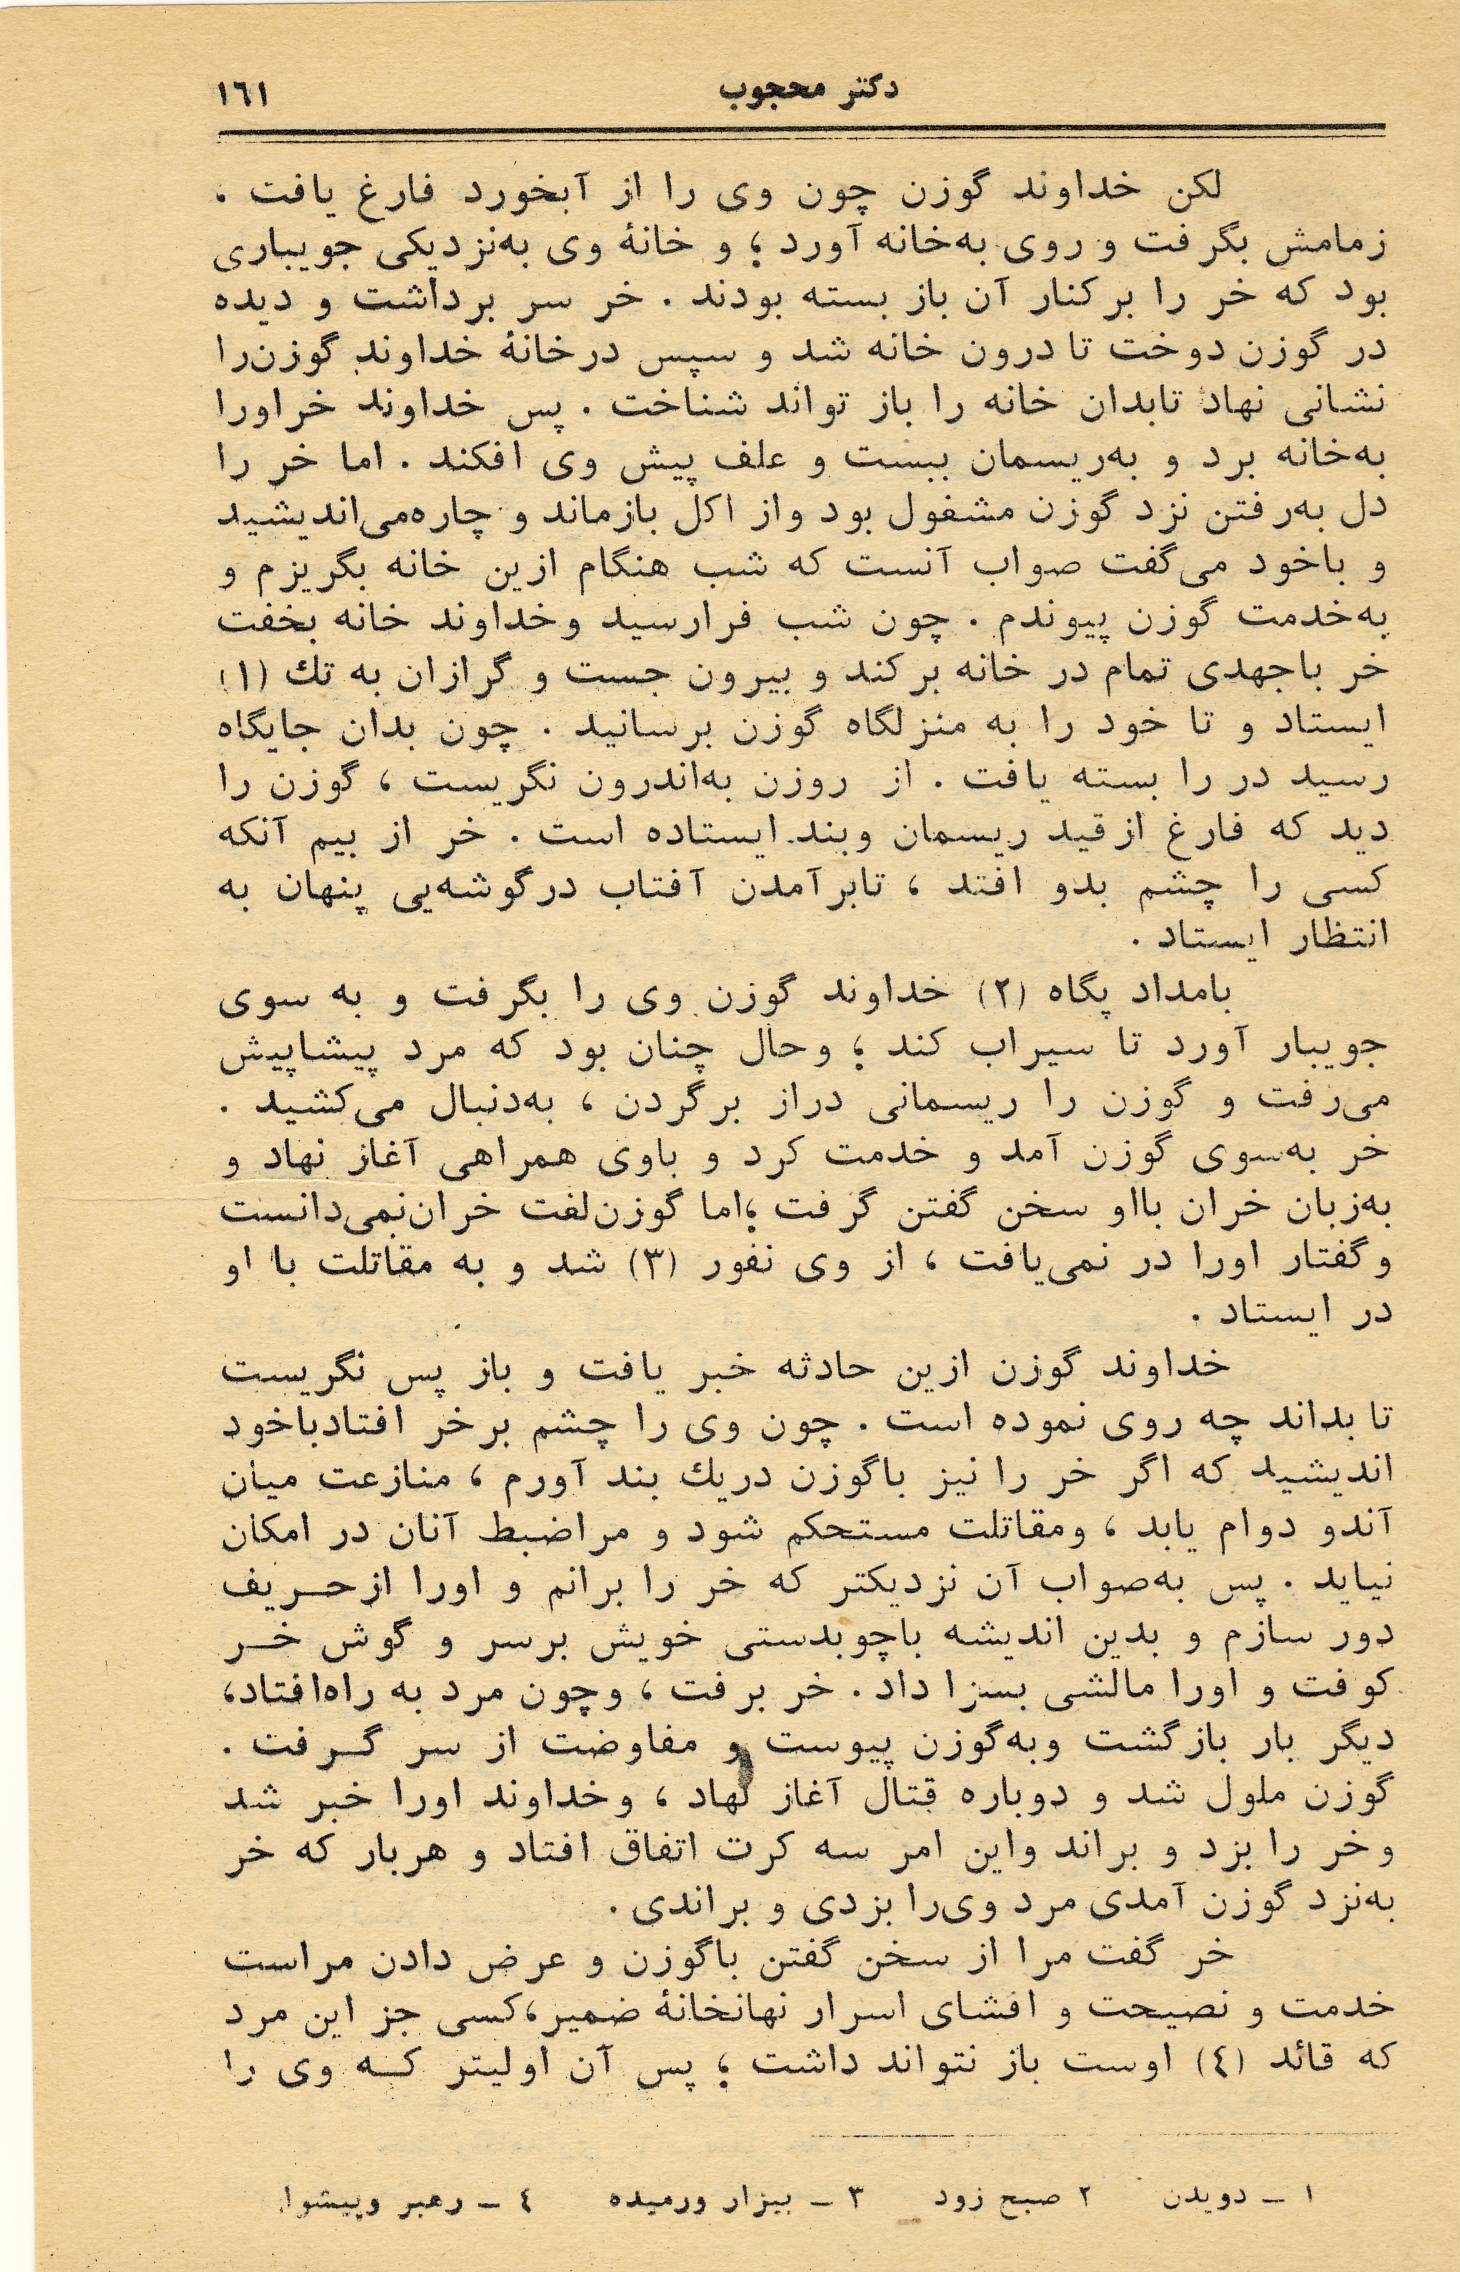 دکتر محجوب
۱۶۱
لکن خداوند گوزن چون وی را از آبخورد فارغ یافت ،
زمامش بگرفت و روی به‌خانه آورد ؛ و خانهٔ وی به‌نزدیکی جویباری
بود که خر را برکنار آن باز بسته بودند . خر سر برداشت و دیده
در گوزن دوخت تا درون خانه شد و سپس درخانهٔ خداوند گوزن‌را
نشانی نهاد تابدان خانه را باز تواند شناخت . پس خداوند خراورا
به‌خانه برد و به‌ریسمان ببست و علف پیش وی افکند . اما خر را
دل به‌رفتن نزد گوزن مشغول بود واز اکل بازماند و چاره‌می‌اندیشید
و باخود می‌گفت صواب آنست که شب هنگام ازین خانه بگریزم و
به‌خدمت گوزن پیوندم . چون شب فرارسید وخداوند خانه بخفت
خر باجهدی تمام در خانه برکند و بیرون جست و گرازان به تك (۱)
ایستاد و تا خود را به منزلگاه گوزن برسانید . چون بدان جایگاه
رسید در را بسته یافت . از روزن به‌اندرون نگریست ، گوزن را
دید که فارغ ازقید ریسمان وبند ایستاده است . خر از بیم آنکه
کسی را چشم بدو افتد ، تابرآمدن آفتاب درگوشه‌یی پنهان به
انتظار ایستاد .
بامداد پگاه (۲) خداوند گوزن وی را بگرفت و به سوی
جویبار آورد تا سیراب کند ؛ وحال چنان بود که مرد پیشاپیش
می‌رفت و گوزن را ریسمانی دراز برگردن ، به‌دنبال می‌کشید .
خر به‌سوی گوزن آمد و خدمت کرد و باوی همراهی آغاز نهاد و
به‌زبان خران بااو سخن گفتن گرفت ؛اما گوزن‌لغت خران‌نمی‌دانست
وگفتار اورا در نمی‌یافت ، از وی نفور (۳) شد و به مقاتلت با او
در ایستاد .
خداوند گوزن ازین حادثه خبر یافت و باز پس نگریست
تا بداند چه روی نموده است . چون وی را چشم برخر افتادباخود
اندیشید که اگر خر را نیز باگوزن دریك بند آورم ، منازعت میان
آندو دوام یابد ، ومقاتلت مستحکم شود و مراضبط آنان در امکان
نیاید . پس به‌صواب آن نزدیکتر که خر را برانم و اورا ازحـریف
دور سازم و بدین اندیشه باچوبدستی خویش برسر و گوش خـر
کوفت و اورا مالشی بسزا داد . خر برفت ، وچون مرد به راه‌افتاد،
دیگر بار بازگشت وبه‌گوزن پیوست و مفاوضت از سر گـرفت .
گوزن ملول شد و دوباره قتال آغاز نهاد ، وخداوند اورا خبر شد
وخر را بزد و براند واین امر سه کرت اتفاق افتاد و هربار که خر
به‌نزد گوزن آمدی مرد وی‌را بزدی و براندی .
خر گفت مرا از سخن گفتن باگوزن و عرض دادن مراست
خدمت و نصیحت و افشای اسرار نهانخانهٔ ضمیر،کسی جز این مرد
که قائد (٤) اوست باز نتواند داشت ؛ پس آن اولیتر کـه وی را
۱ – دویدن    ۲ صبح زود    ۳ – بیزار ورمیده    ٤ – رهبر وپیشوا